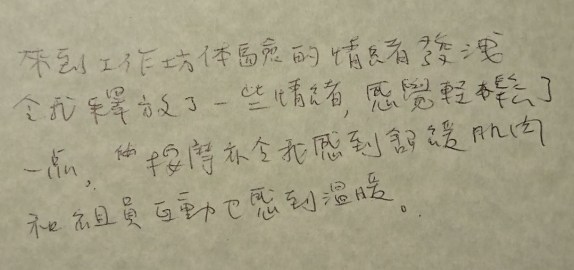 來到工作坊体驗的情绪發洩
令我釋放了一些情绪,感覺輕鬆了
一点,按摩亦令我感到舒緩肌肉
和組員互動也感到温暖。